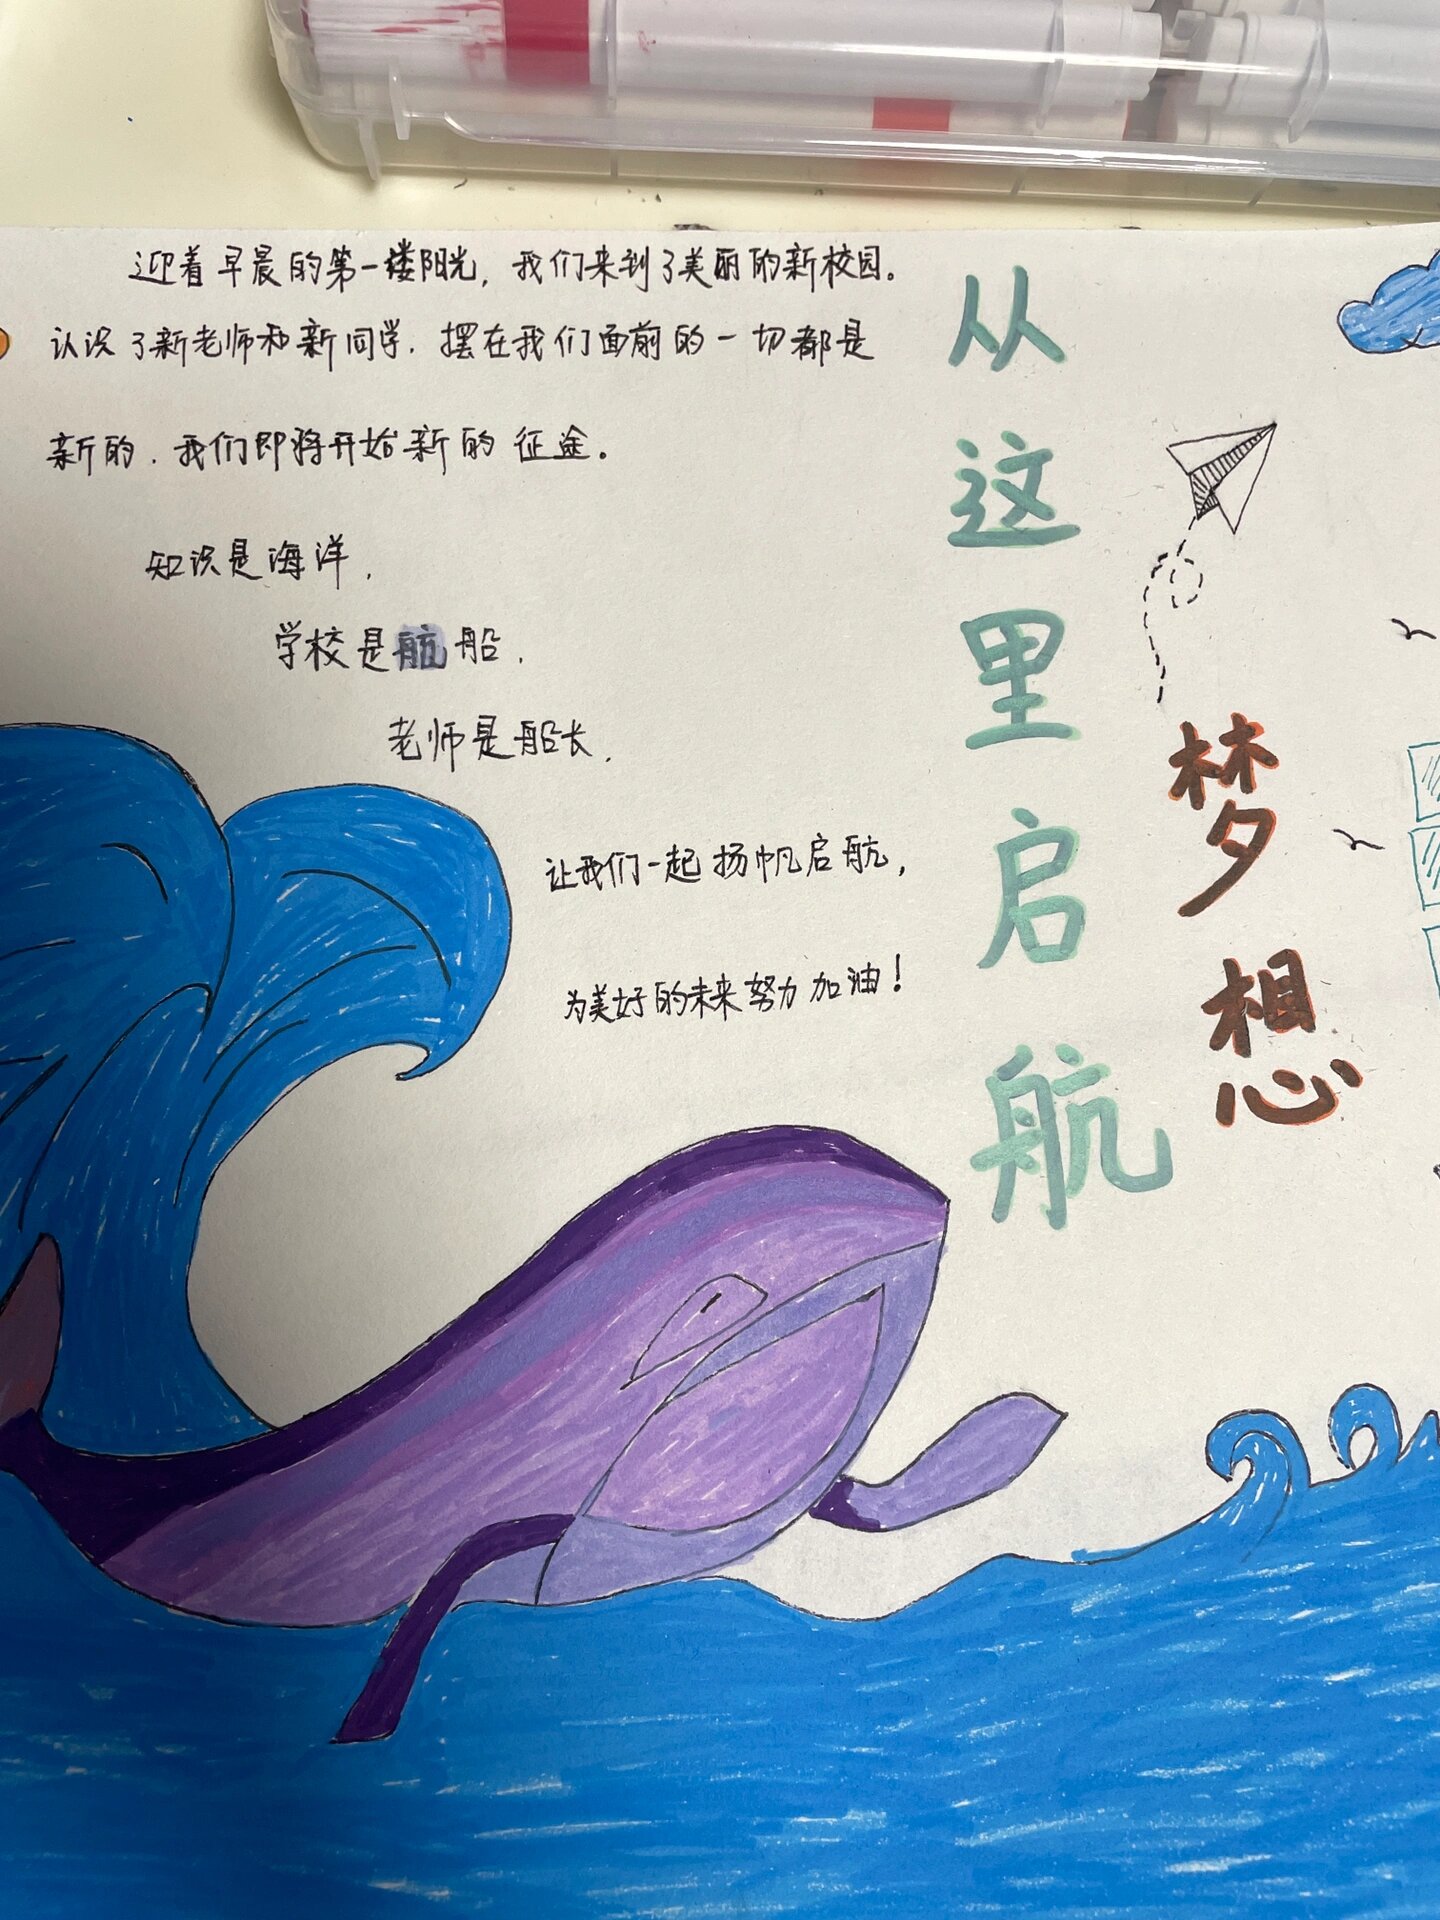 迎着早晨的第一缕阳光，我们来到了美丽的新校园。
认识了新老师和新同学．摆在我们面前的一切都是
新的．我们即将开始新的征途。
知识是海洋，
学校是航船，
老师是船长，
让我们一起扬帆启航，
为美好的未来努力加油！
梦想
从这里启航